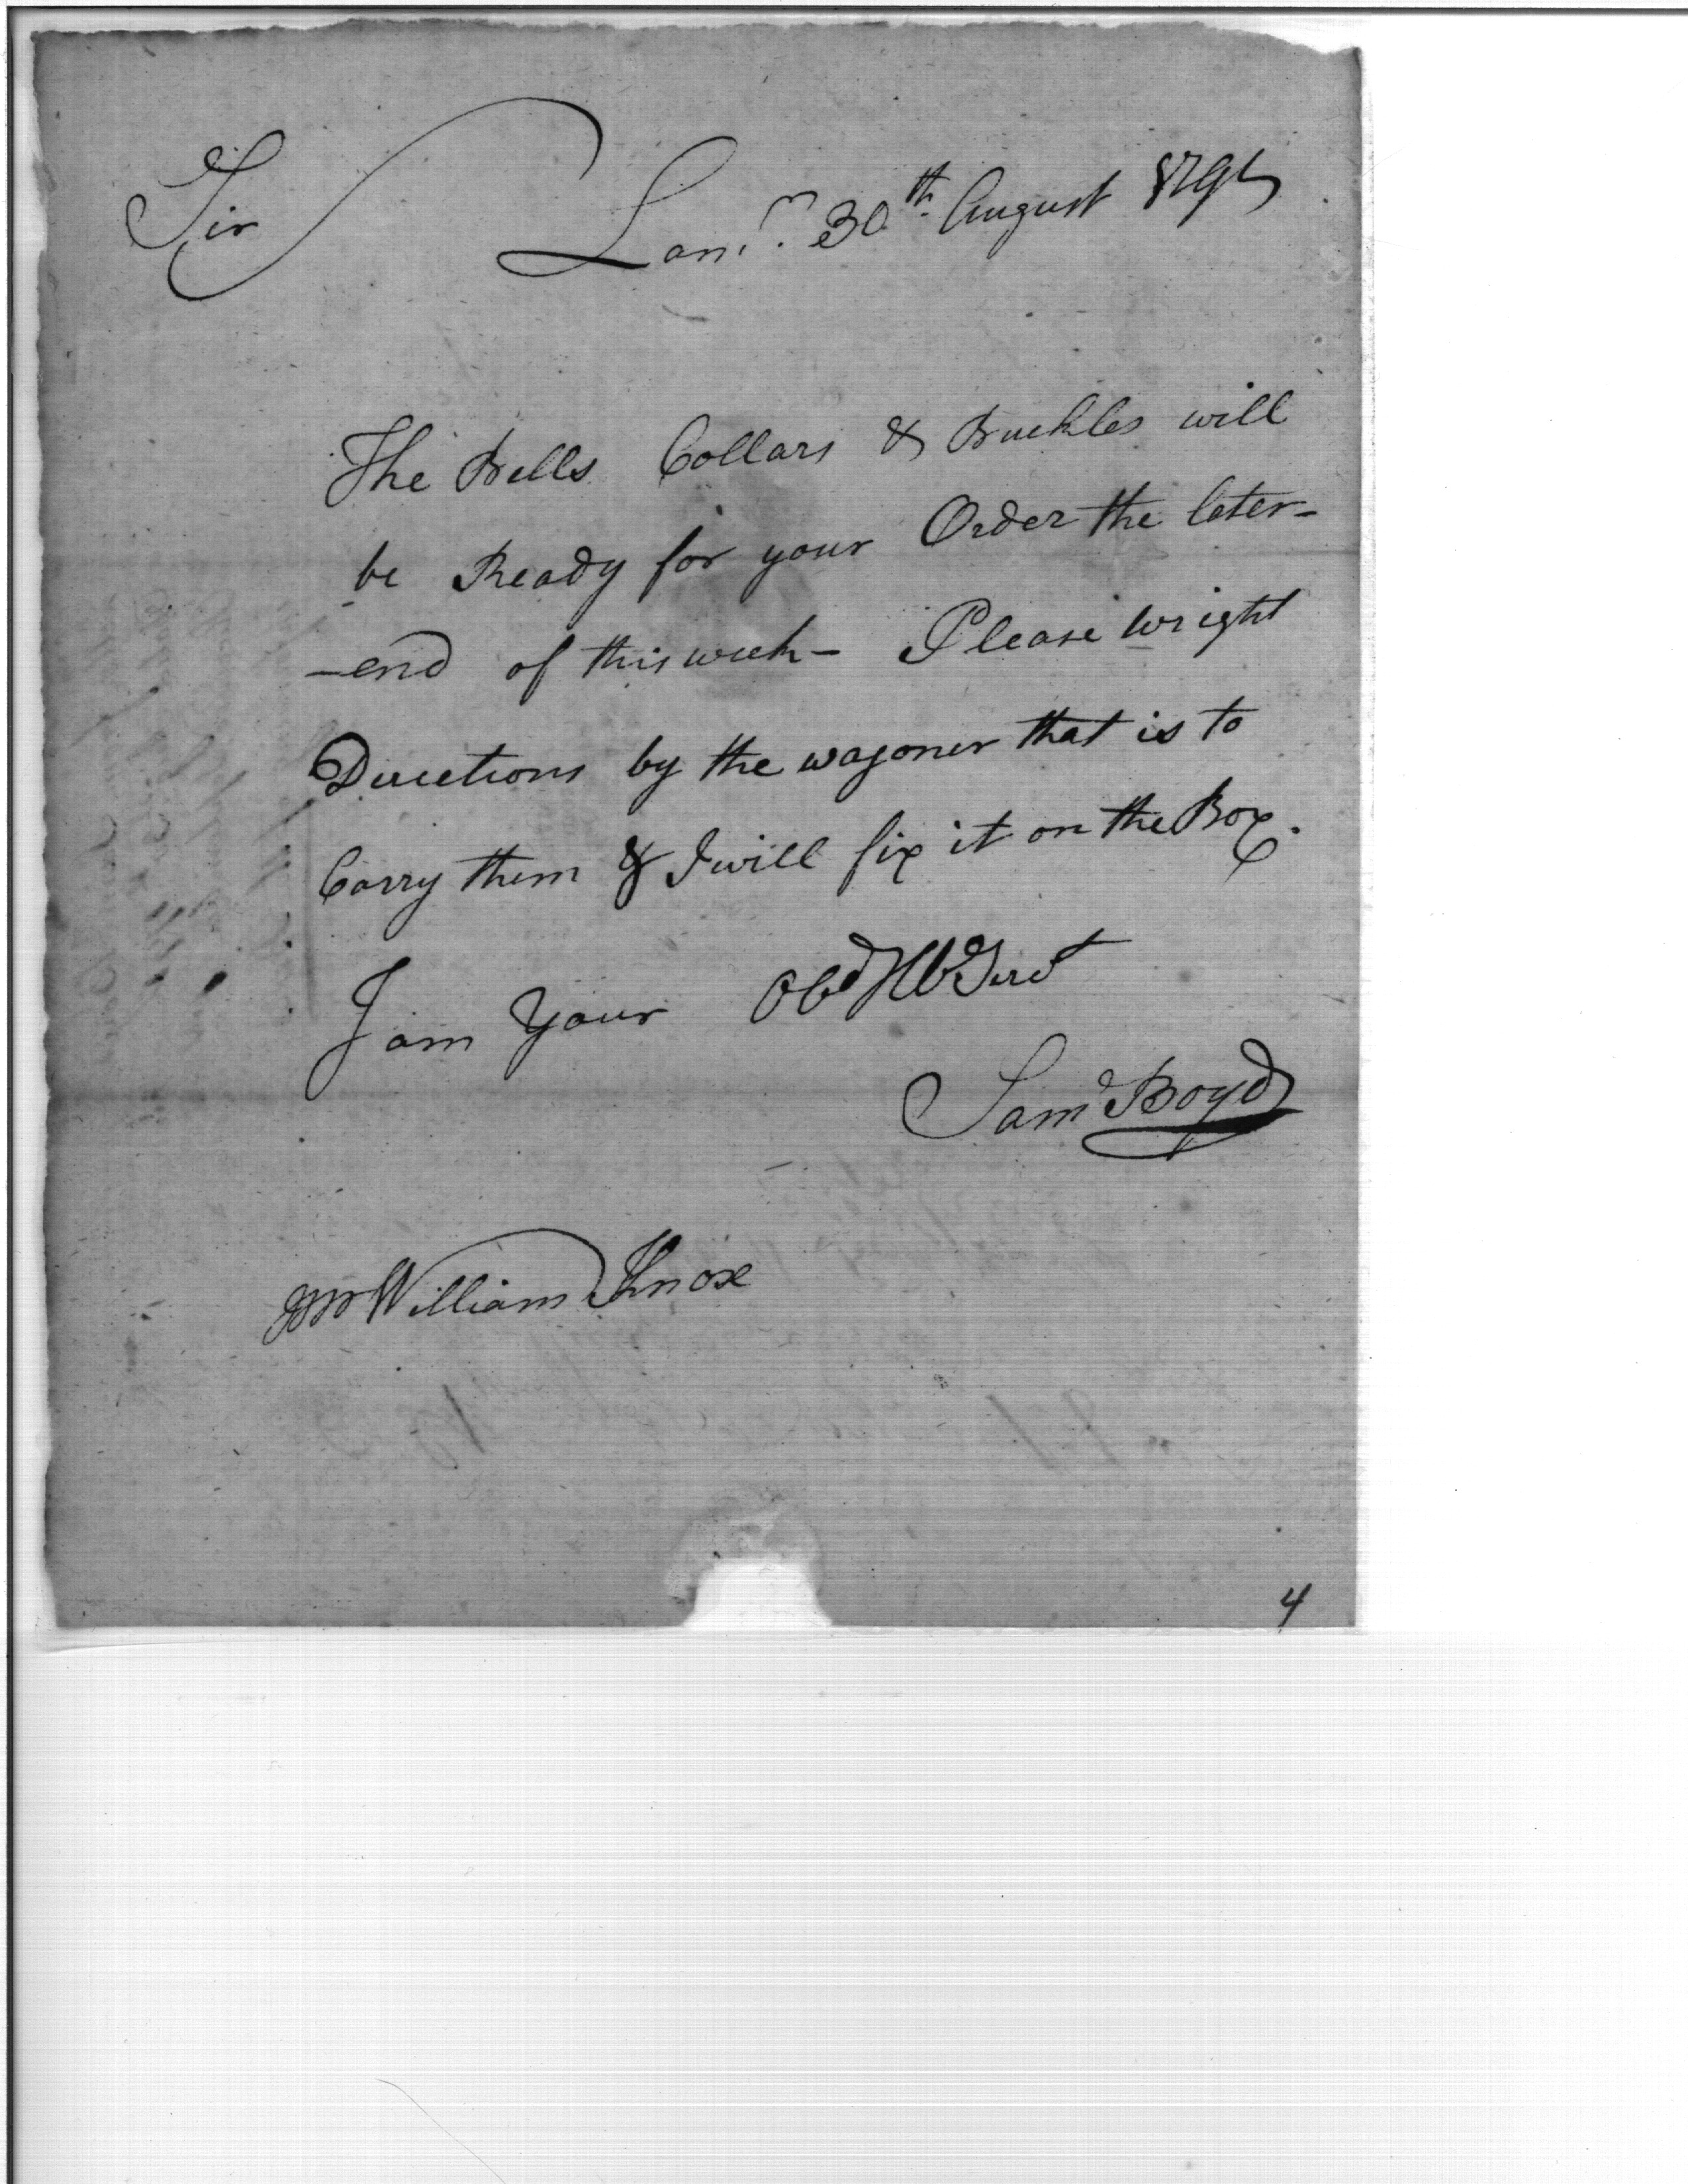 Sir
Lanr. 30th August 1795
The Bells Collars & Buckles will
be Ready for your Order the later-
-end of this week- Please wright
Directions by the wagoner that is to
Carry them & I will fix it on the Box.
I am Your Obd Hb Servt
Saml Boyd
Mr William Knox
4